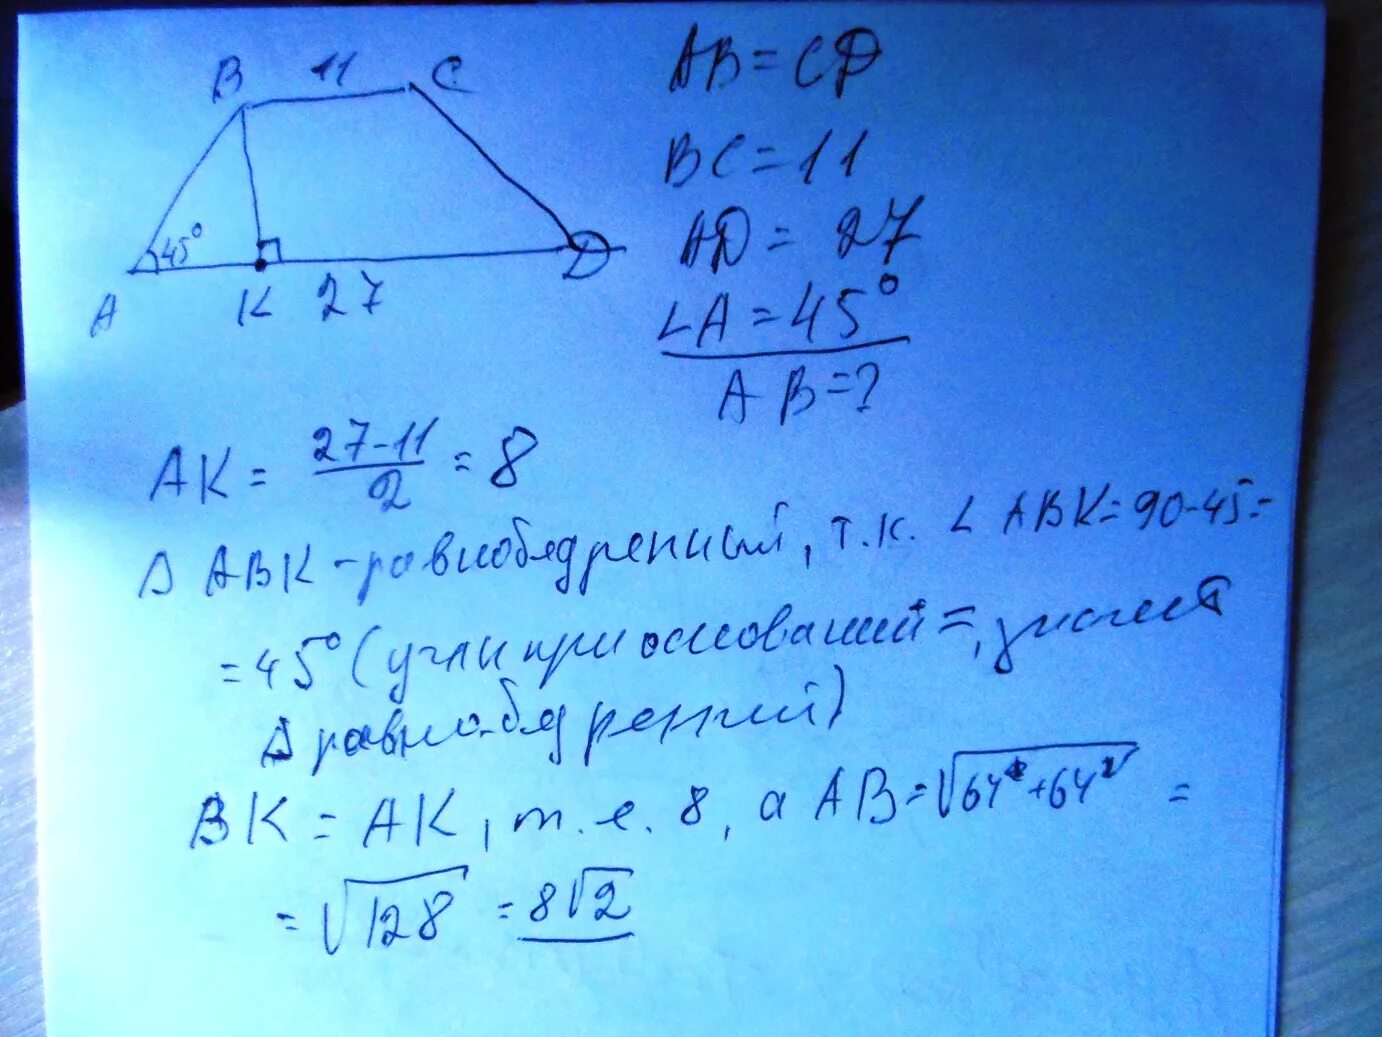 B 11 C
45°
A K 27 D
AB = CD
BC = 11
AD = 27
∠A = 45°
AB = ?
AK = \frac{27-11}{2} = 8
Δ ABK - равнобедренный, т.к. ∠ ABK = 90-45 =
= 45° (угли при оснований =, значит
Δ равно-бедренный)
BK = AK, т.е. 8, а AB = √(64² + 64²) =
= √128 = 8√2